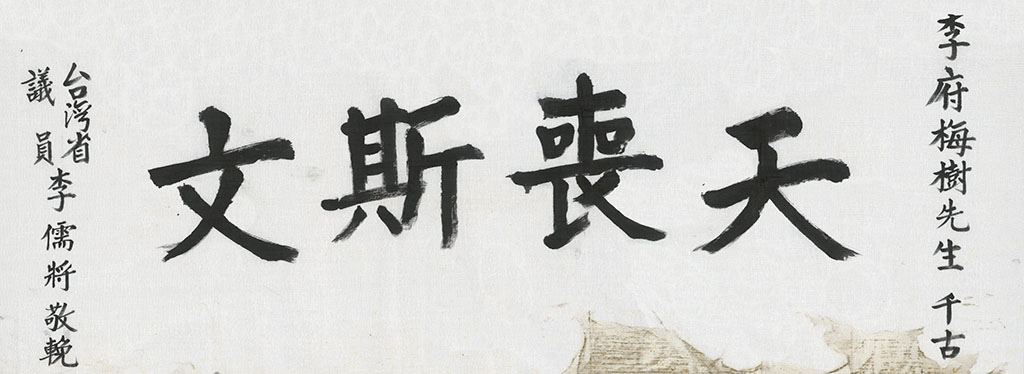 李府梅樹先生千古
天喪斯文
台灣省
議員
李儒將敬輓